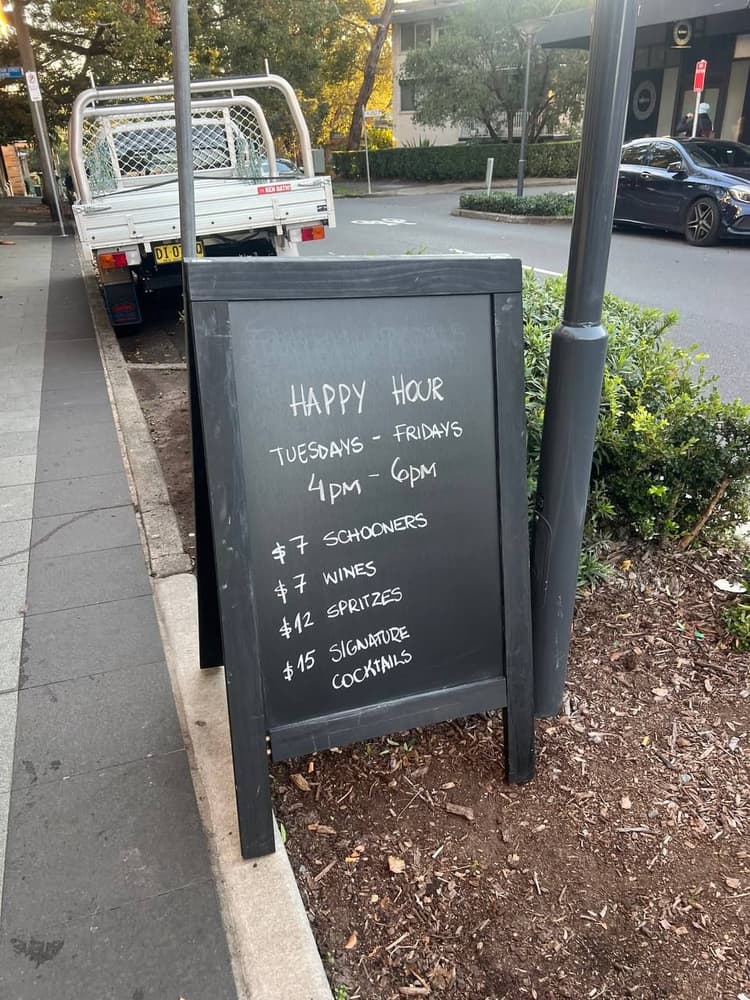 HAPPY HOUR
TUESDAYS - FRIDAYS
4PM - 6PM
$7 SCHOONERS
$7 WINES
$12 SPRITZES
$15 SIGNATURE
COCKTAILS